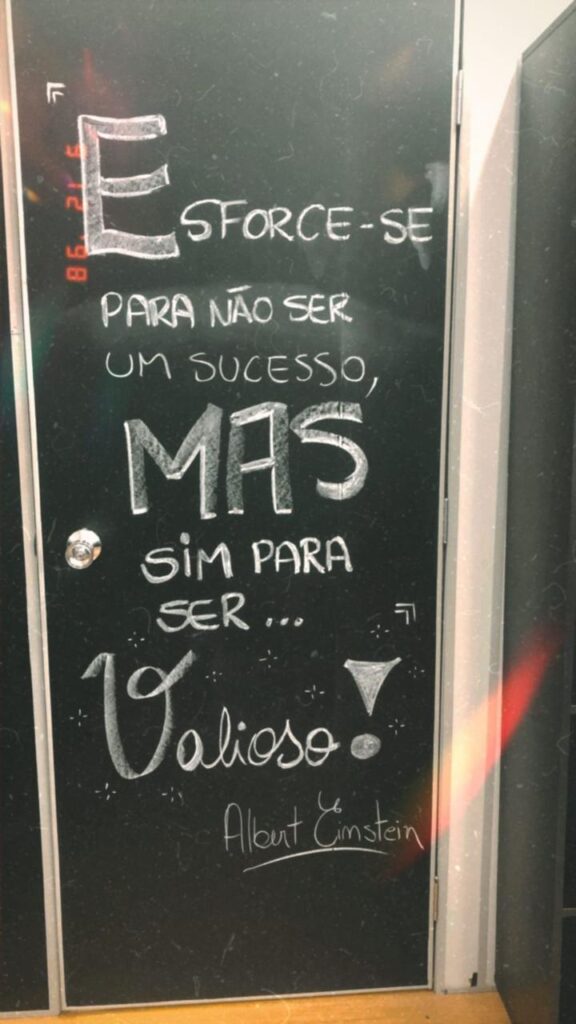 ESFORCE-SE
PARA NÃO SER
UM SUCESSO,
MAS
SIM PARA
SER...
Valioso!
Albert Eimstein